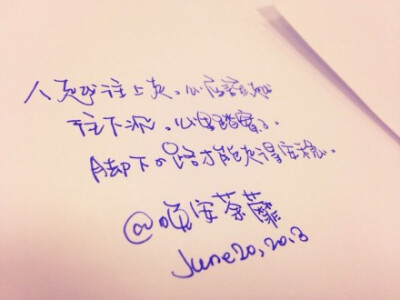 人越往上走,心应该越
往下沉,心里踏实了,
脚下的路才能走得安稳。
@晚安荼蘼
June 20, 2013